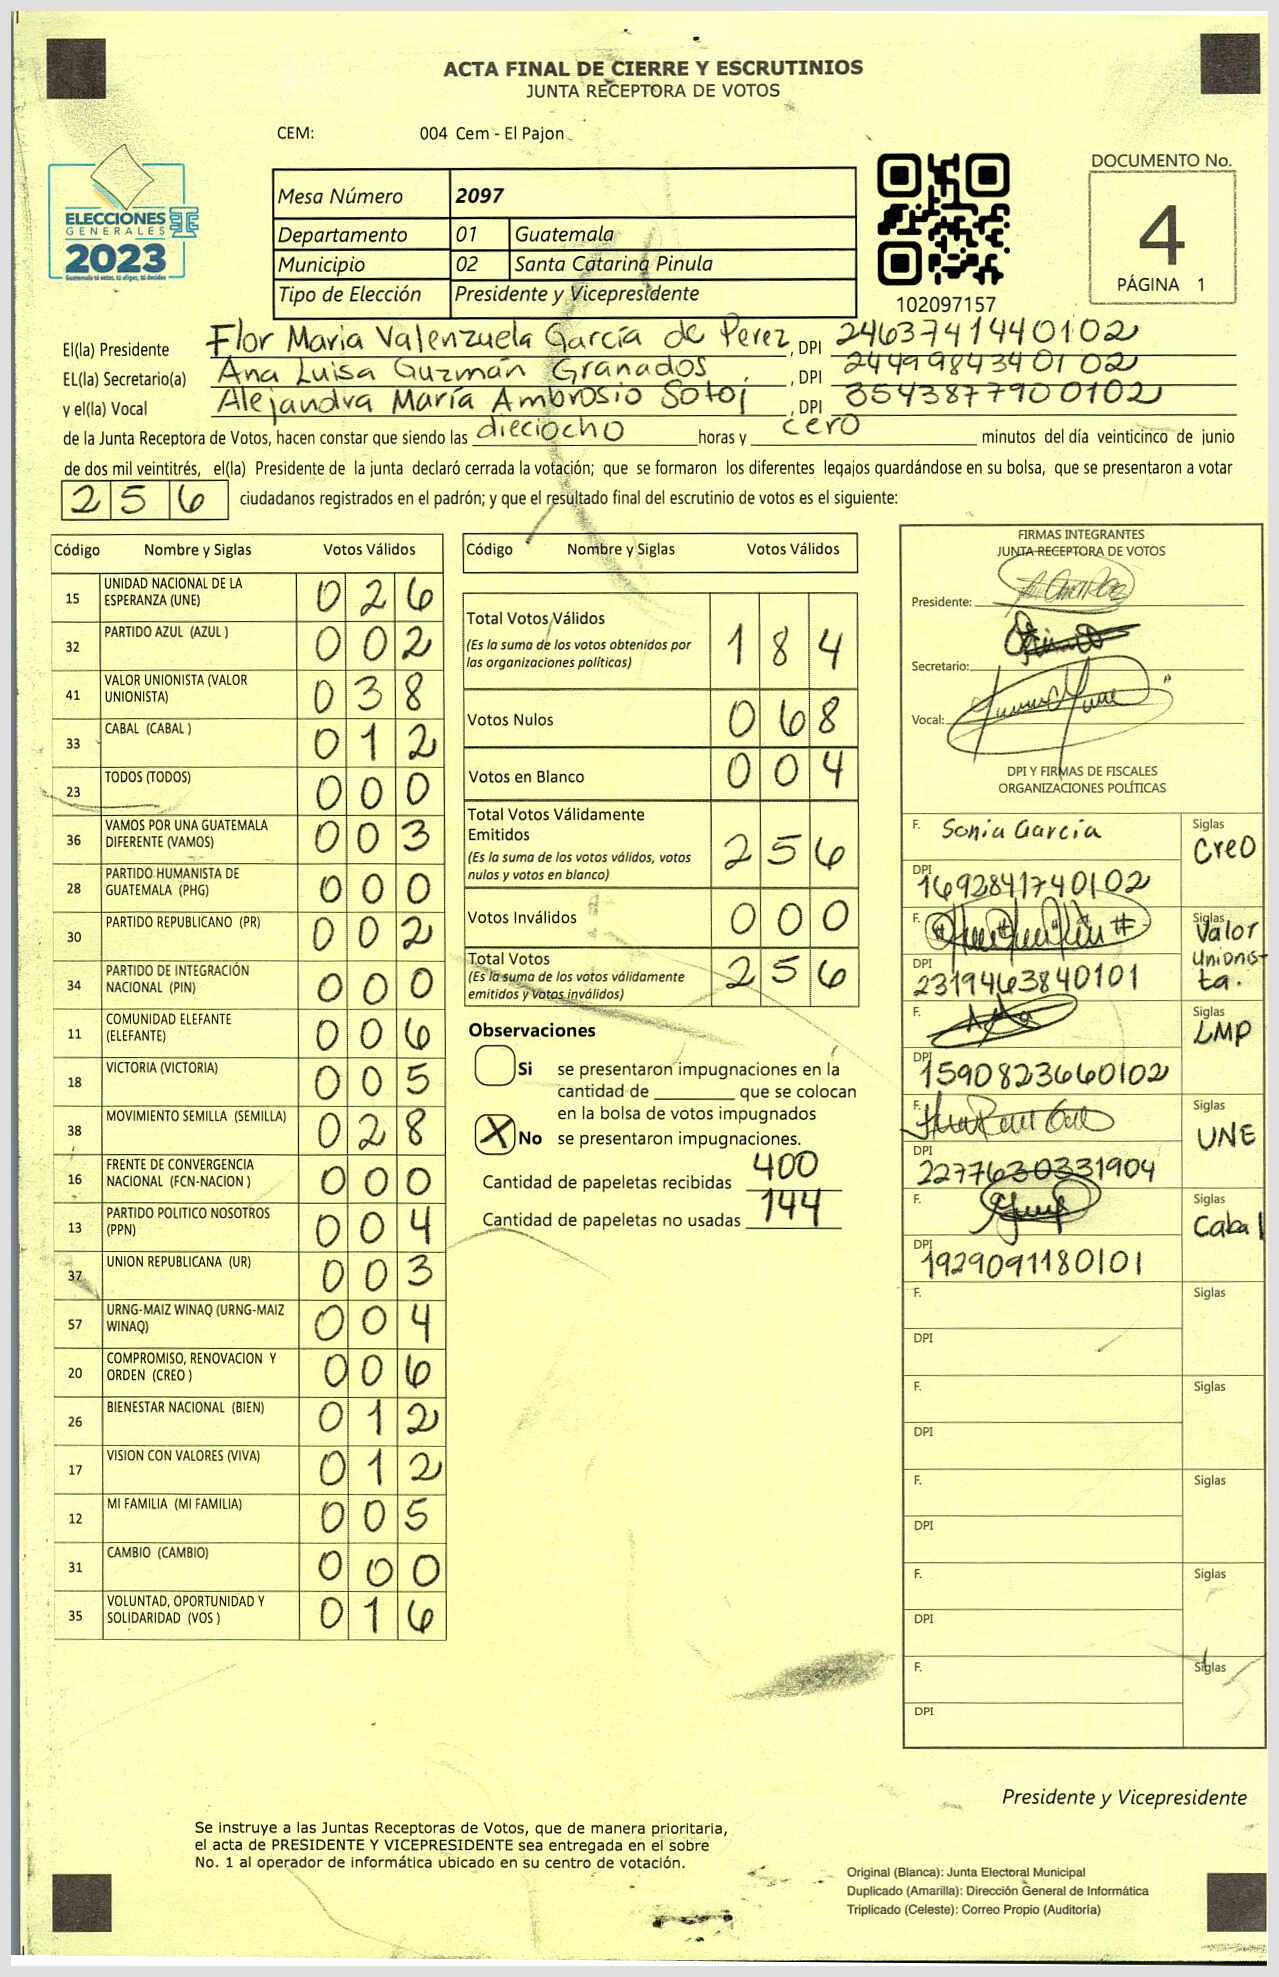 ACTA FINAL DE CIERRE Y ESCRUTINIOS
JUNTA RECEPTORA DE VOTOS
CEM: 004 Cem - El Pajon
ELECCIONES
GENERALES
2023
Guatemala tú votas, tú eliges, tú decides
Mesa Número 2097
Departamento 01 Guatemala
Municipio 02 Santa Catarina Pinula
Tipo de Elección Presidente y Vicepresidente
102097157
DOCUMENTO No.
4
PÁGINA 1
El(la) Presidente Flor Maria Valenzuela García de Perez, DPI 2463741440102
EL(la) Secretario(a) Ana Luisa Guzmán Granados, DPI 2449984340102
y el(la) Vocal Alejandra María Ambrosio Sotoj, DPI 3543877900102
de la Junta Receptora de Votos, hacen constar que siendo las dieciocho horas y cero minutos del día veinticinco de junio
de dos mil veintitrés, el(la) Presidente de la junta declaró cerrada la votación; que se formaron los diferentes legajos guardándose en su bolsa, que se presentaron a votar
256 ciudadanos registrados en el padrón; y que el resultado final del escrutinio de votos es el siguiente:
Código Nombre y Siglas Votos Válidos
15 UNIDAD NACIONAL DE LA ESPERANZA (UNE) 026
32 PARTIDO AZUL (AZUL ) 002
41 VALOR UNIONISTA (VALOR UNIONISTA) 038
33 CABAL (CABAL ) 012
23 TODOS (TODOS) 000
36 VAMOS POR UNA GUATEMALA DIFERENTE (VAMOS) 003
28 PARTIDO HUMANISTA DE GUATEMALA (PHG) 000
30 PARTIDO REPUBLICANO (PR) 002
34 PARTIDO DE INTEGRACIÓN NACIONAL (PIN) 000
11 COMUNIDAD ELEFANTE (ELEFANTE) 006
18 VICTORIA (VICTORIA) 005
38 MOVIMIENTO SEMILLA (SEMILLA) 028
16 FRENTE DE CONVERGENCIA NACIONAL (FCN-NACION ) 000
13 PARTIDO POLITICO NOSOTROS (PPN) 004
37 UNION REPUBLICANA (UR) 003
57 URNG-MAIZ WINAQ (URNG-MAIZ WINAQ) 004
20 COMPROMISO, RENOVACION Y ORDEN (CREO ) 006
26 BIENESTAR NACIONAL (BIEN) 012
17 VISION CON VALORES (VIVA) 012
12 MI FAMILIA (MI FAMILIA) 005
31 CAMBIO (CAMBIO) 000
35 VOLUNTAD, OPORTUNIDAD Y SOLIDARIDAD (VOS ) 016
Código Nombre y Siglas Votos Válidos
Total Votos Válidos 184
(Es la suma de los votos obtenidos por
las organizaciones políticas)
Votos Nulos 068
Votos en Blanco 004
Total Votos Válidamente
Emitidos 256
(Es la suma de los votos válidos, votos
nulos y votos en blanco)
Votos Inválidos 000
Total Votos 256
(Es la suma de los votos válidamente
emitidos y votos inválidos)
Observaciones
Si se presentaron impugnaciones en la
cantidad de ________ que se colocan
en la bolsa de votos impugnados
X No se presentaron impugnaciones.
Cantidad de papeletas recibidas 400
Cantidad de papeletas no usadas 144
FIRMAS INTEGRANTES
JUNTA RECEPTORA DE VOTOS
Presidente:
Secretario:
Vocal:
DPI Y FIRMAS DE FISCALES
ORGANIZACIONES POLÍTICAS
F. Sonia García Siglas CreO
DPI 1692841740102
F. Siglas Valor Unionista.
DPI 2319463840101
F. Siglas LMP
DPI 1590823660102
F. Siglas UNE
DPI 2277630331904
F. Siglas Cabal
DPI 1929091180101
F. Siglas
DPI
F. Siglas
DPI
F. Siglas
DPI
F. Siglas
DPI
F. Siglas
DPI
Presidente y Vicepresidente
Se instruye a las Juntas Receptoras de Votos, que de manera prioritaria,
el acta de PRESIDENTE Y VICEPRESIDENTE sea entregada en el sobre
No. 1 al operador de informática ubicado en su centro de votación.
Original (Blanca): Junta Electoral Municipal
Duplicado (Amarilla): Dirección General de Informática
Triplicado (Celeste): Correo Propio (Auditoría)